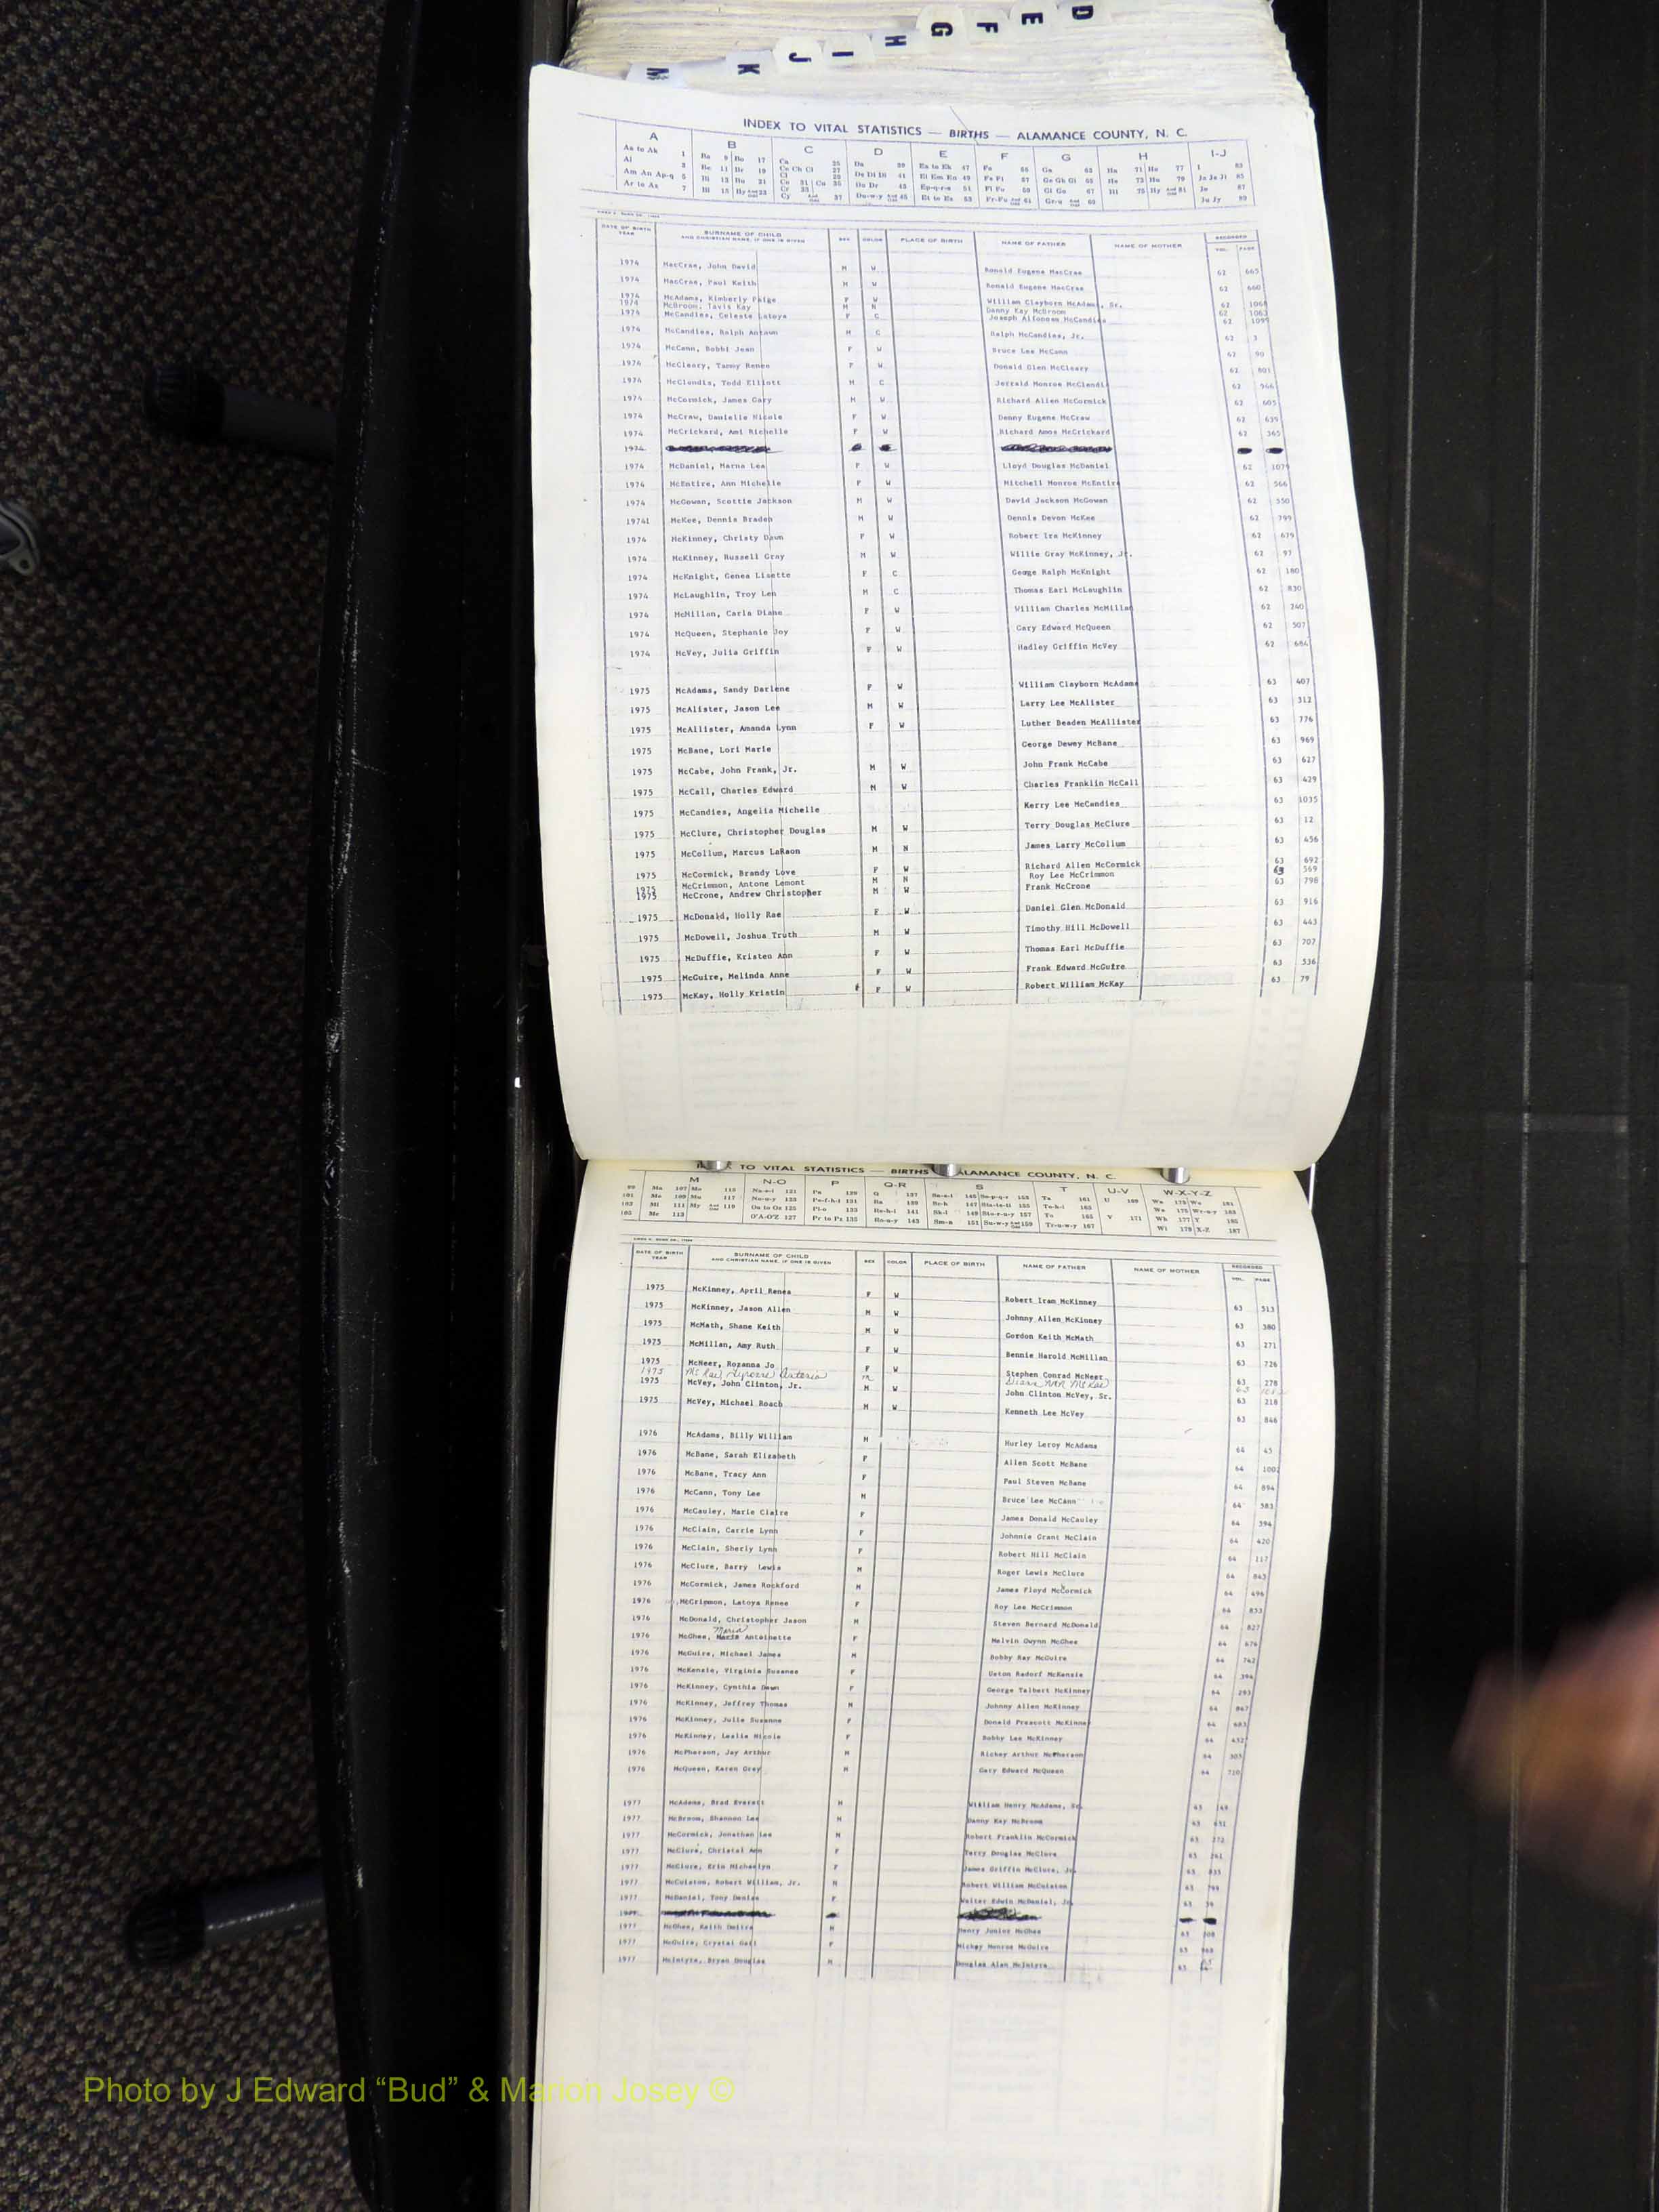 D
E
F
G
H
I
J
K
M
INDEX TO VITAL STATISTICS — BIRTHS — ALAMANCE COUNTY, N. C.
A B C D E F G H I-J
DATE OF BIRTH YEAR SURNAME OF CHILD AND CHRISTIAN NAME, IF ONE IS GIVEN SEX COLOR PLACE OF BIRTH NAME OF FATHER NAME OF MOTHER RECORDED VOL. PAGE
1974 MacCrae, John David M W Ronald Eugene MacCrae 62 665
1974 MacCrae, Paul Keith M W Ronald Eugene MacCrae 62 660
1974 McAdams, Kimberly Paige F W William Clayborn McAdams, Sr. 62
1974 McBroom, Tavis Kay M N Danny Kay McBroom 62 1063
1974 McCandies, Celeste Latoya F C Joseph Alfonson McCandies 62 1099
1974 McCandies, Ralph Antawn M C Ralph McCandies, Jr. 62 3
1974 McCann, Bobbi Jean F W Bruce Lee McCann 62 90
1974 McCleary, Tammy Renee F W Donald Glen McCleary 62 801
1974 McClendis, Todd Elliott M C Jerrald Monroe McClendi 62 966
1974 McCormick, James Gary M W Richard Allen McCormick 62 605
1974 McCraw, Danielle Nicole F W Denny Eugene McCraw 62 639
1974 McCrickard, Ami Richelle F W Richard Amos McCrickard 62 365
1974
1974 McDaniel, Marna Lea F W Lloyd Douglas McDaniel 62 1079
1974 McEntire, Ann Michelle F W Mitchell Monroe McEntire 62 566
1974 McGowan, Scottie Jackson M W David Jackson McGowan 62 550
19741 McKee, Dennis Braden M W Dennis Devon McKee 62 799
1974 McKinney, Christy Dawn F W Robert Ira McKinney 62 679
1974 McKinney, Russell Gray M W Willie Gray McKinney, Jr. 62 97
1974 McKnight, Genea Lisette F C George Ralph McKnight 62 180
1974 McLaughlin, Troy Len M C Thomas Earl McLaughlin 62 830
1974 McMillan, Carla Diane F W William Charles McMillan 62 240
1974 McQueen, Stephanie Joy F W Gary Edward McQueen 62 507
1974 McVey, Julia Griffin F W Hadley Griffin McVey 62 684
1975 McAdams, Sandy Darlene F W William Clayborn McAdams 63 407
1975 McAlister, Jason Lee M W Larry Lee McAlister 63 312
1975 McAllister, Amanda Lynn F W Luther Beaden McAllister 63 776
1975 McBane, Lori Marie George Dewey McBane 63 969
1975 McCabe, John Frank, Jr. M W John Frank McCabe 63 627
1975 McCall, Charles Edward M W Charles Franklin McCall 63 429
1975 McCandies, Angelia Michelle Kerry Lee McCandies 63 1035
1975 McClure, Christopher Douglas M W Terry Douglas McClure 63 12
1975 McCollum, Marcus LaRaon M N James Larry McCollum 63 456
1975 McCormick, Brandy Love F W Richard Allen McCormick 63 692
1975 McCrimmon, Antone Lemont M N Roy Lee McCrimmon 63 569
1975 McCrone, Andrew Christopher M W Frank McCrone 63 798
1975 McDonald, Holly Rae F W Daniel Glen McDonald 63 916
1975 McDowell, Joshua Truth M W Timothy Hill McDowell 63 443
1975 McDuffie, Kristen Ann F W Thomas Earl McDuffie 63 707
1975 McGuire, Melinda Anne F W Frank Edward McGuire 63 536
1975 McKay, Holly Kristin F W Robert William McKay 63 79
TO VITAL STATISTICS — BIRTHS ALAMANCE COUNTY, N. C.
M N-O P Q-R S T U-V W-X-Y-Z
DATE OF BIRTH YEAR SURNAME OF CHILD AND CHRISTIAN NAME, IF ONE IS GIVEN SEX COLOR PLACE OF BIRTH NAME OF FATHER NAME OF MOTHER RECORDED VOL. PAGE
1975 McKinney, April Renea F W Robert Iram McKinney 63 513
1975 McKinney, Jason Allen M W Johnny Allen McKinney 63 380
1975 McMath, Shane Keith M W Gordon Keith McMath 63 271
1975 McMillan, Amy Ruth F W Bennie Harold McMillan 63 726
1975 McNeer, Rozanna Jo F W Stephen Conrad McNeer 63 278
1975 McRae, Anterio m McRae
1975 McVey, John Clinton, Jr. M W John Clinton McVey, Sr. 63 218
1975 McVey, Michael Roach M W Kenneth Lee McVey 63 846
1976 McAdams, Billy William M Hurley Leroy McAdams 64 45
1976 McBane, Sarah Elizabeth F Allen Scott McBane 64 1002
1976 McBane, Tracy Ann F Paul Steven McBane 64 894
1976 McCann, Tony Lee M Bruce Lee McCann 64 583
1976 McCauley, Marie Claire F James Donald McCauley 64 594
1976 McClain, Carrie Lynn F Johnnie Grant McClain 64 420
1976 McClain, Sherly Lynn F Robert Hill McClain 64 117
1976 McClure, Barry Lewis M Roger Lewis McClure 64 843
1976 McCormick, James Rockford M James Floyd McCormick 64 496
1976 McCrimmon, Latoya Renee F Roy Lee McCrimmon 64 853
1976 McDonald, Christopher Jason M Steven Bernard McDonald 64 827
Maria
1976 McGhee, Antoinette F Melvin Gwynn McGhee 64 676
1976 McGuire, Michael James M Bobby Ray McGuire 64 742
1976 McKenzie, Virginia Suzanne F McKenzie 64 394
1976 McKinney, Cynthia Dawn F George Talbert McKinney 64 293
1976 McKinney, Jeffrey Thomas M Johnny Allen McKinney 64 867
1976 McKinney, Julie Suzanne F Donald Prescott McKinney 64 683
1976 McKinney, Leslie Nicole F Bobby Lee McKinney 64 432
1976 McPherson, Jay Arthur M Rickey Arthur McPherson 64 305
1976 McQueen, Karen Gray M Gary Edward McQueen 64 720
1977 McAdams, Brad Everett M William Henry McAdams, Sr.
1977 McBroom, Shannon Lee M Danny Kay McBroom
1977 McCormick, Jonathan Lee M Robert Franklin McCormick
1977 McClure, Christal Ann F Terry Douglas McClure
1977 McClure, Erin Michaelyn F James Griffin McClure, Jr.
1977 McCuiston, Robert William, Jr. M Robert William McCuiston
1977 McDaniel, Tony Denise F Walter Edwin McDaniel, Jr.
1977
1977 McGhee, Keith M Henry Junior McGhee
1977 McGuire, Crystal Gail F Mickey Monroe McGuire
1977 McIntyre, Bryan Douglas M Douglas Alan McIntyre
Photo by J Edward “Bud” & Marion Josey ©